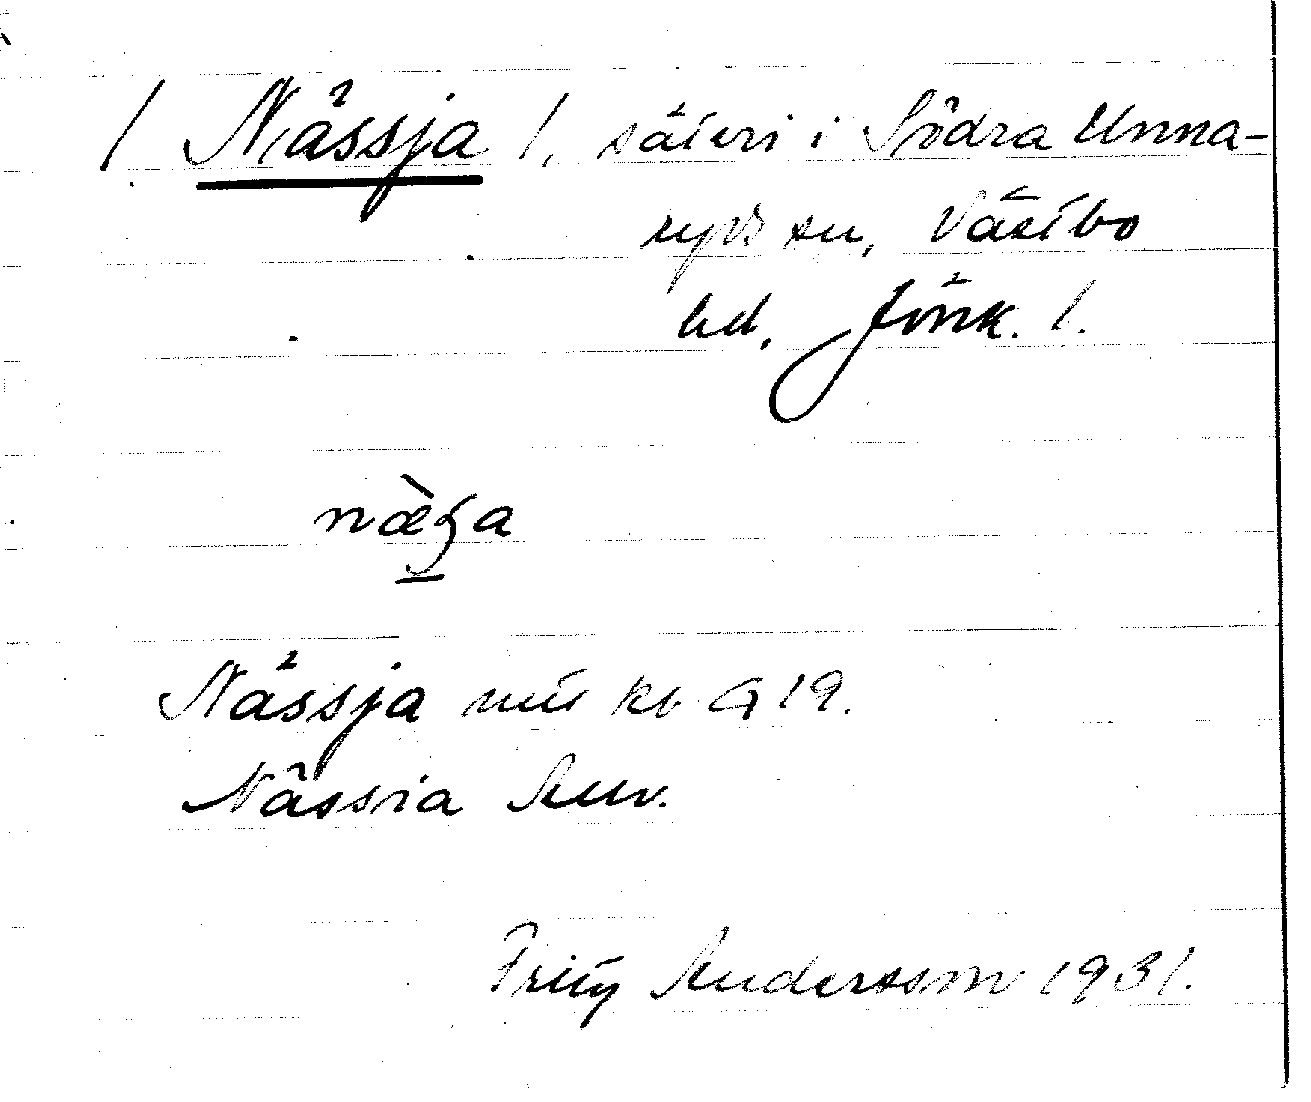 / Nässja /, säteri i Södra Unna-
ryds sn, Västbo
hd, Jönk. l.
næ̀ʒa
Nässja mtl kb G 19.
Nässia Auv.
Fritz Andersson 1931.